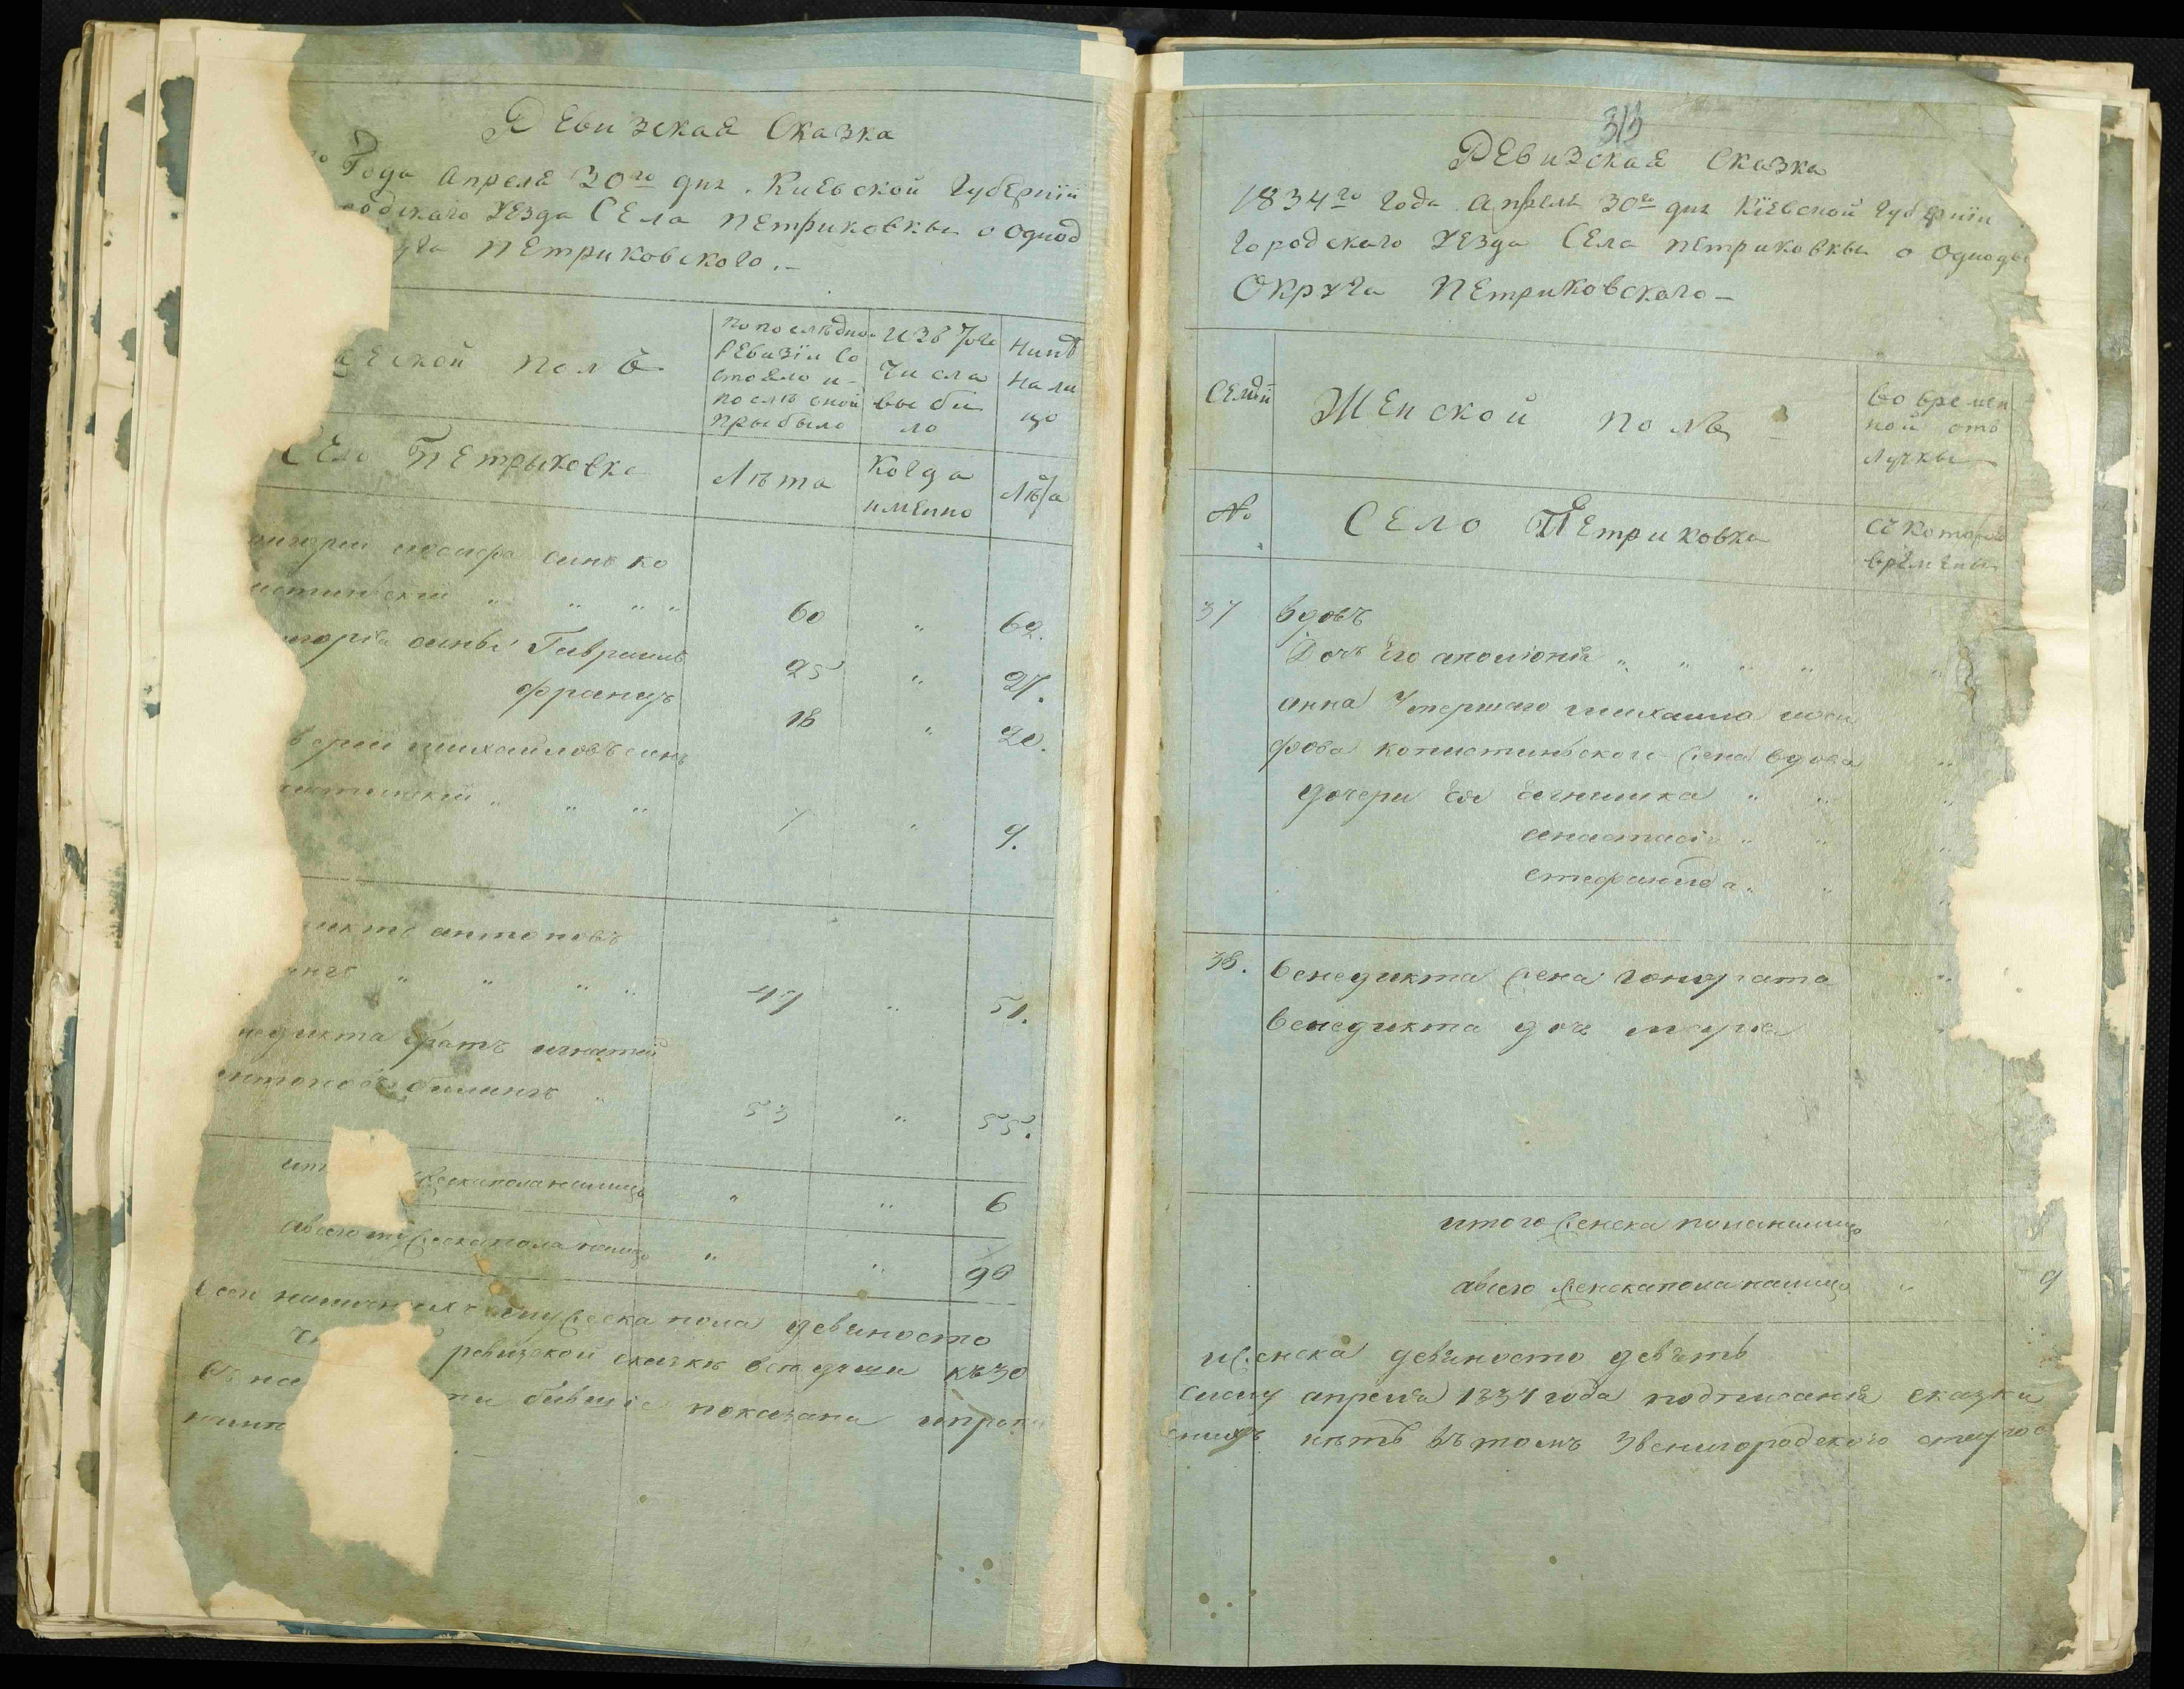 Ревизская Сказка
Года Апреля 30го дня. Киевской Губерніи
родскаго Уезда Села Петриковки о Однод
уга Петриковского.-
еской полъ
по последно
Ревизіи со
стояло и
после оной
прыбыло
изъ того
числа
выби
ло
нинѣ
на ли
цо
Село Петрыковка
Лѣта
Когда
именно
Лѣта
григорій иосифа синъ ко
истинскій " " " " 60 " 62.
игорія сины Гавриилъ 25 " 27.
францъ 18 " 20.
верій михайловъ синъ
истинскій " " " 7 " 9.
диктъ антоновъ
" " " " 49 " 51.
недикта братъ игнатій
нтоновъ билинъ " 53 " 55.
ит ска пола налицо " " 6
авсего мужеска пола налицо " " 96
всех наличныхъ мужеска пола девяносто
ревизской сказке все души къ 30
въ не ти бывшіе показани и проп
313
Ревизская Сказка
1834го года Апреля 30го дня Кіевской Губерніи
городского Уезда Села Петриковки о Однодв
Округа Петриковского-
Семьи
Женской полъ
во времен
ной отъ
лучкы
№
Село Петриковка
съ котораго
времени
37 вдовъ
Дочъ Его аполіонія " " " " "
анна Умершаго михаила иоси
фова копистинского жена вдова "
дочери Ея Агнишка " " "
анастасія " " "
стефанида " " "
38. бенедикта жена гонората "
бенедикта дочъ марія
итого женска пола налицо
авсего женска пола налицо " 9
и женска девяносто девять
сному апреля 1834 года подписанія сказки
нихъ нѣтъ въ томъ Звенигородского